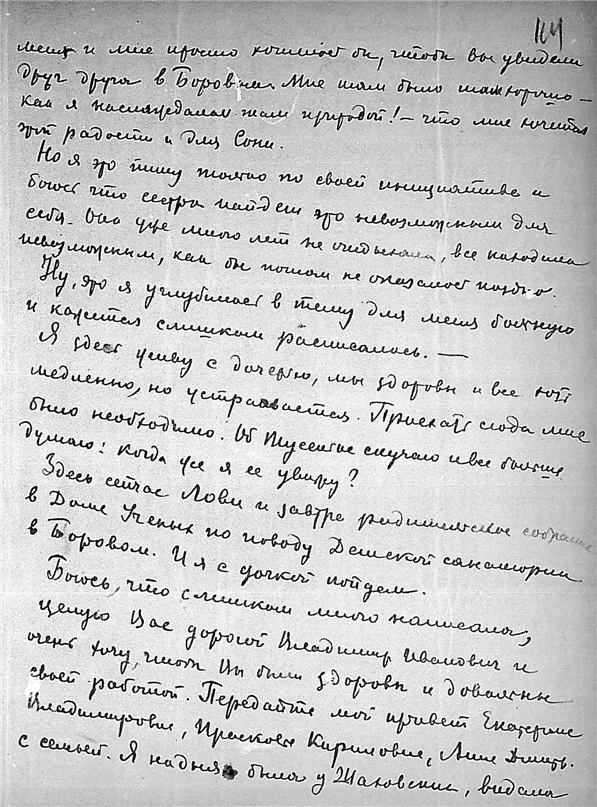 114
меня и мне просто хотелось бы, чтобы вы увидели
друг друга в Боровом. Мне там было так хорошо –
как я наслаждалась там природой! – что мне хочется
этой радости и для Сони.
Но я это пишу только по своей инициативе и
боюсь что сестра найдет это невозможным для
себя. Она уже много лет не отдыхала, все находила
невозможным, как бы потом не оказалось поздно.
Ну, это я углубилась в тему для меня больную
и кажется слишком расписалась. —
Я здесь живу с дочерью, мы здоровы и все хоть
медленно, но устраивается. Приехать сюда мне
было необходимо. Об скучаю и все больше
думаю: когда же я ее увижу?
Здесь сейчас Лови и завтра родительское собрание
в Доме Ученых по поводу Детской санатории
в Боровом. И я с дочкой пойдем.
Боюсь, что слишком много написала,
целую Вас дорогой Владимир Иванович и
очень хочу, чтобы Вы были здоровы и довольны
своей работой. Передайте мой привет Екатерине
Владимировне, Прасковье Кирилловне, Анне Дмитр.
с семьей. Я на днях была у Шаховских, видала